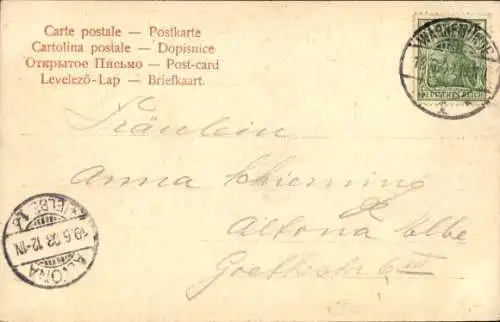 Carte postale – Postkarte
Cartolina postale – Dopisnice
Открытое Письмо – Post-card
Levelező-Lap – Briefkaart.
DEUTSCHES REICH
Fräulein
Anna
Altona Elbe
Goethestr 6 III
ALTONA
(ELBE) 1
19.6.03.12-1N